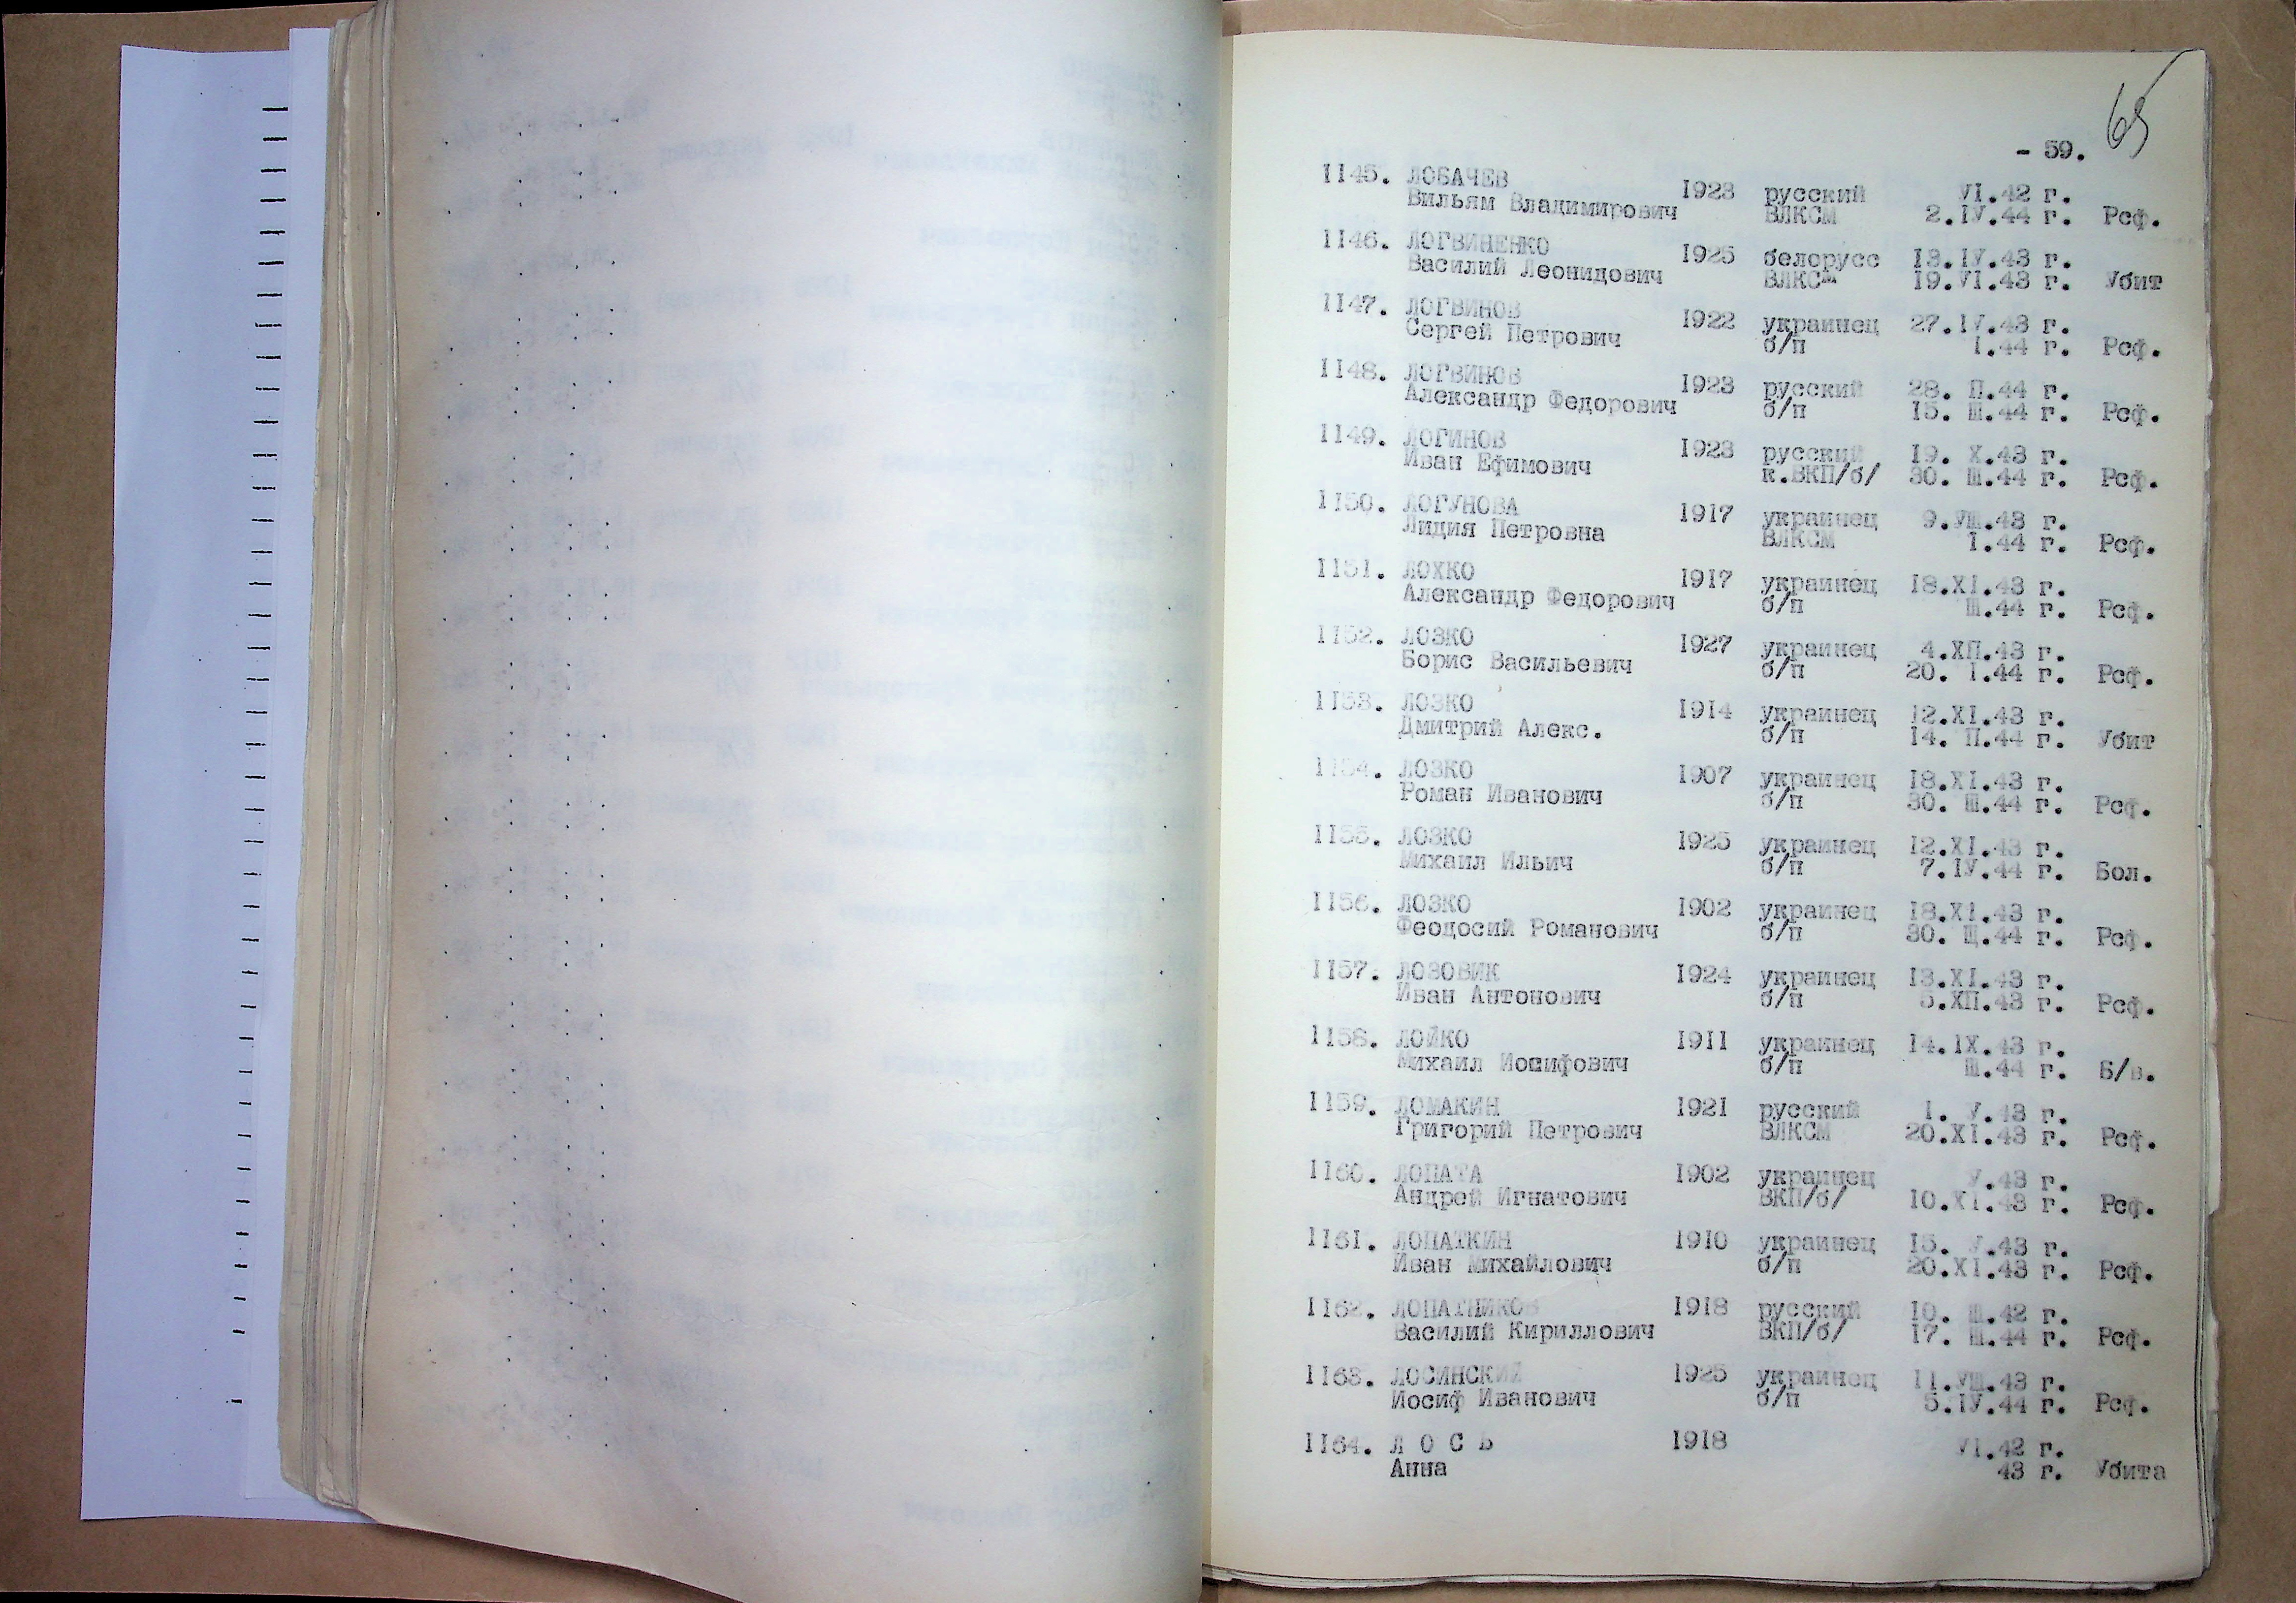 65
- 59.
1145. ЛОБАЧЕВ 1923 русский VI.42 г.
Вильям Владимирович ВЛКСМ 2.IV.44 г. Рсф.
1146. ЛОГВИНЕНКО 1925 белорусс 13.IV.43 г.
Василий Леонидович ВЛКСМ 19.VI.43 г. Убит
1147. ЛОГВИНОВ 1922 украинец 27.IV.43 г.
Сергей Петрович б/п I.44 г. Рсф.
1148. ЛОГВИНОВ 1923 русский 28. П.44 г.
Александр Федорович б/п 15. Ш.44 г. Рсф.
1149. ЛОГИНОВ 1923 русский 19. X.43 г.
Иван Ефимович к.ВКП/б/ 30. Ш.44 г. Рсф.
1150. ЛОГУНОВА 1917 украинец 9.УШ.43 г.
Лидия Петровна ВЛКСМ I.44 г. Рсф.
1151. ЛОХКО 1917 украинец 18.XI.43 г.
Александр Федорович б/п Ш.44 г. Рсф.
1152. ЛОЗКО 1927 украинец 4.ХП.43 г.
Борис Васильевич б/п 20. I.44 г. Рсф.
1153. ЛОЗКО 1914 украинец 12.XI.43 г.
Дмитрий Алекс. б/п 14. П.44 г. Убит
1154. ЛОЗКО 1907 украинец 18.XI.43 г.
Роман Иванович б/п 30. Ш.44 г. Рсф.
1155. ЛОЗКО 1925 украинец 12.XI.43 г.
Михаил Ильич б/п 7.IV.44 г. Бол.
1156. ЛОЗКО 1902 украинец 18.XI.43 г.
Феодосий Романович б/п 30. Ш.44 г. Рсф.
1157. ЛОЗОВИК 1924 украинец 13.XI.43 г.
Иван Антонович б/п 5.ХП.43 г. Рсф.
1158. ЛОЙКО 1911 украинец 14.IX.43 г.
Михаил Иосифович б/п Ш.44 г. Б/в.
1159. ЛОМАКИН 1921 русский 1. V.43 г.
Григорий Петрович ВЛКСМ 20.XI.43 г. Рсф.
1160. ЛОПАТА 1902 украинец V.43 г.
Андрей Игнатович ВКП/б/ 10.XI.43 г. Рсф.
1161. ЛОПАТКИН 1910 украинец 15. V.43 г.
Иван Михайлович б/п 20.XI.43 г. Рсф.
1162. ЛОПАТНИКОВ 1918 русский 10. Ш.42 г.
Василий Кириллович ВКП/б/ 17. Ш.44 г. Рсф.
1163. ЛОСИНСКИЙ 1925 украинец 11.УШ.43 г.
Иосиф Иванович б/п 5.IV.44 г. Рсф.
1164. Л О С Ь 1918 VI.42 г.
Анна 43 г. Убита